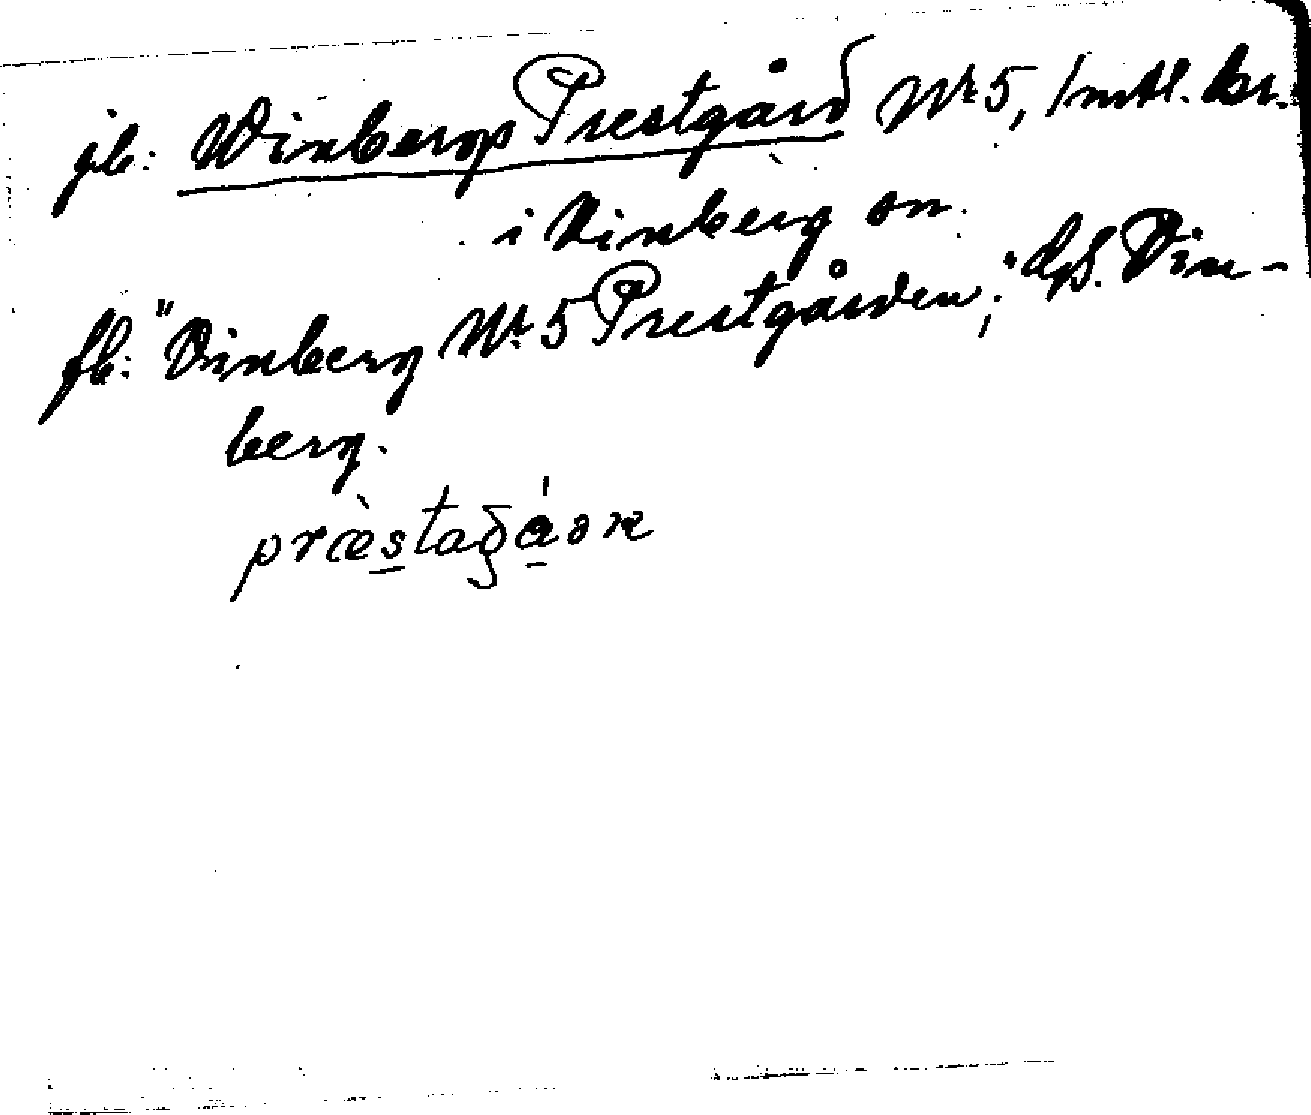 jb: Winbergs Prestgård Nr 5, 1 mtl. kr.
i Vinberg sn.
fb: "Vinberg Nr 5 Prestgården;" Vin-
berg.